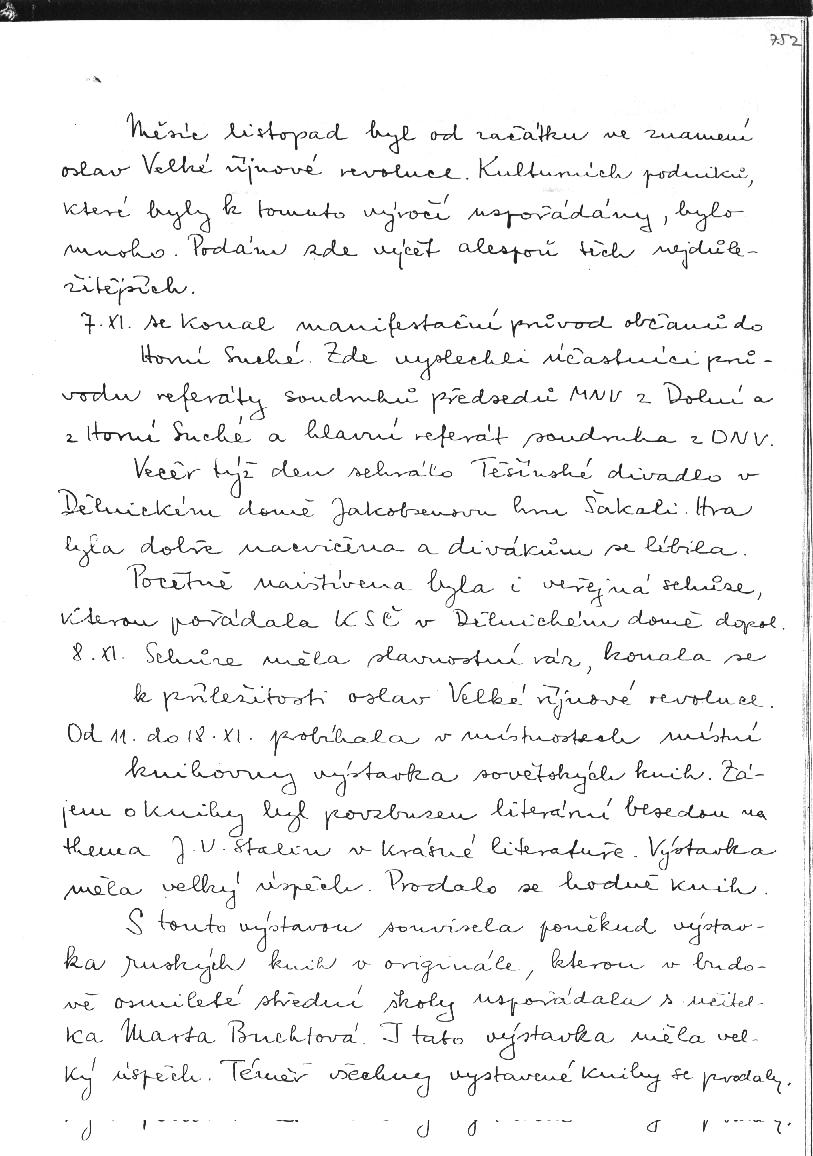 752
Měsíc listopad byl od začátku ve znamení
oslav Velké říjnové revoluce. Kulturních podniků,
které byly k tomuto výročí uspořádány, bylo
mnoho. Podám zde výčet alespoň těch nejdůle-
žitějších.
7. XI. se konal manifestační průvod občanů do
Horní Suché. Zde vyslechli účastníci prů-
vodu referáty soudruhů předsedů MNV z Dolní a
z Horní Suché a hlavní referát soudruha z ONV.
Večer týž den sehrálo Těšínské divadlo v
Dělnickém domě Jakobsenovu hru Šakali. Hra
byla dobře nacvičena a divákům se líbila.
Početně navštívena byla i veřejná schůze,
kterou pořádala KSČ v Dělnickém domě dopol.
8. XI. Schůze měla slavnostní ráz, konala se
k příležitosti oslav Velké říjnové revoluce.
Od 11. do 18. XI. probíhala v místnostech místní
knihovny výstavka sovětských knih. Zá-
jem o knihy byl povzbuzen literární besedou na
thema J. V. Stalin v krásné literatuře. Výstavka
měla velký úspěch. Prodalo se hodně knih.
S touto výstavou souvisela poněkud výstav-
ka ruských knih v originále, kterou v budo-
vě osmileté střední školy uspořádala s. učitel-
ka Marta Buchtová. I tato výstavka měla vel-
ký úspěch. Téměř všechny vystavené knihy se prodaly.